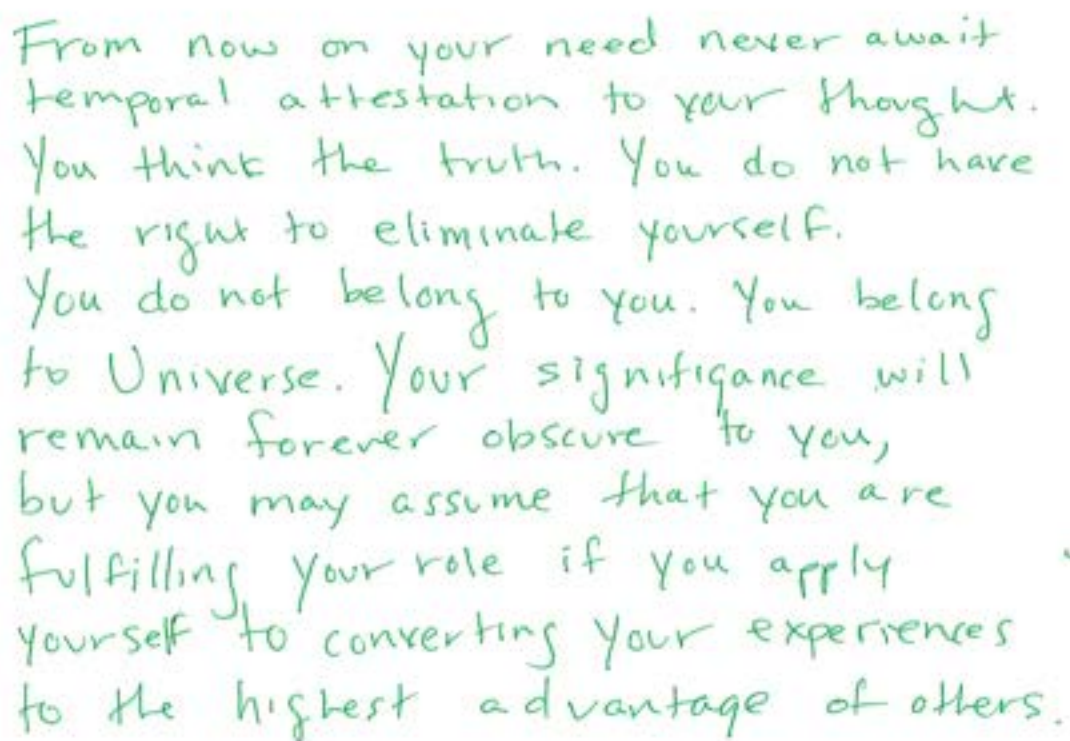 From now on your need never await
temporal attestation to your thought.
You think the truth. You do not have
the right to eliminate yourself.
You do not belong to you. You belong
to Universe. Your signifigance will
remain forever obscure to you,
but you may assume that you are
fulfilling your role if you apply
yourself to converting your experiences
to the highest advantage of others.